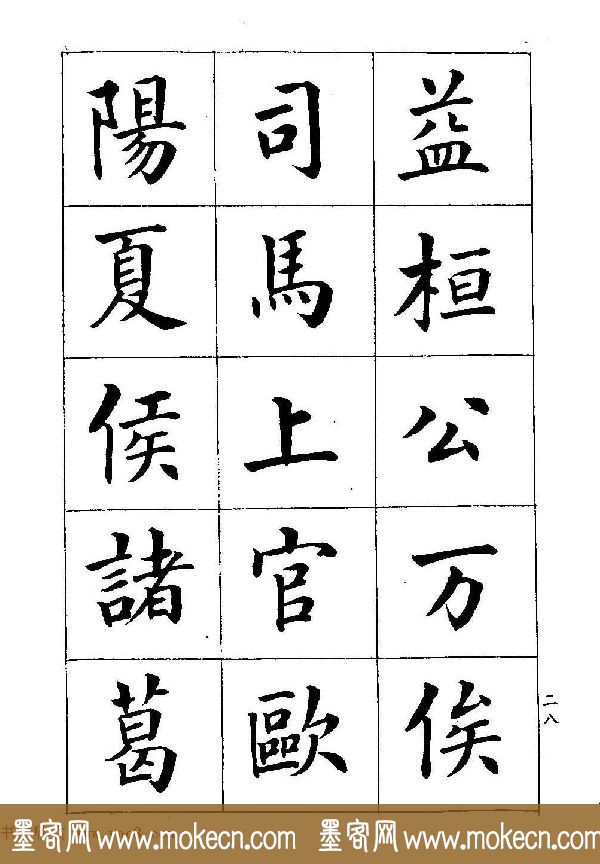 益桓公万俟
司馬上官歐
陽夏侯諸葛
二八
墨客网 www.mokecn.com 墨客网 www.mokecn.com